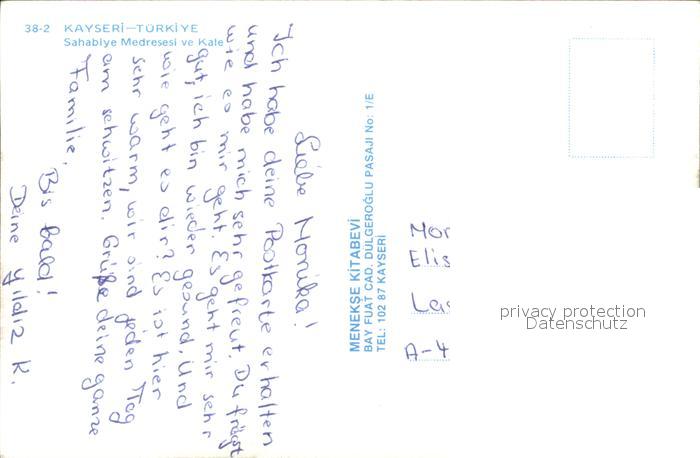 38-2 KAYSERİ—TÜRKİYE
Sahabiye Medresesi ve Kale
Liebe Monika!
Ich habe deine Postkarte erhalten
und habe mich sehr gefreut. Du frägst
wie es mir geht. Es geht mir sehr
gut, ich bin wieder gesund. Und
wie geht es dir? Es ist hier
sehr warm, wir sind jeden Tag
am schwitzen. Grüße deine ganze
Familie.
Bis bald!
Deine Yıldız K.
MENEKŞE KİTABEVİ
BAY FUAT CAD. DULGEROĞLU PASAJI No: 1/E
TEL: 102 87 KAYSERİ
Mor
Elis
A-4
privacy protection
Datenschutz